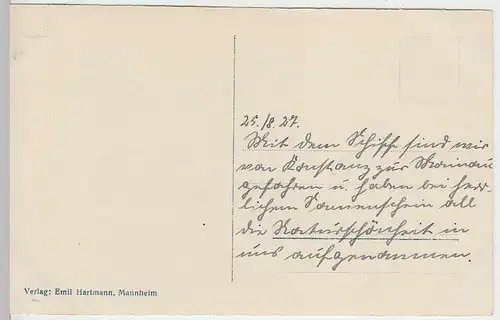 25./8. 27.
Mit dem Schiff sind wir
von Konstanz zur Mainau
gefahren u. haben bei herr-
lichem Sonnenschein all
die Naturschönheit in
uns aufgenommen.
Verlag: Emil Hartmann, Mannheim